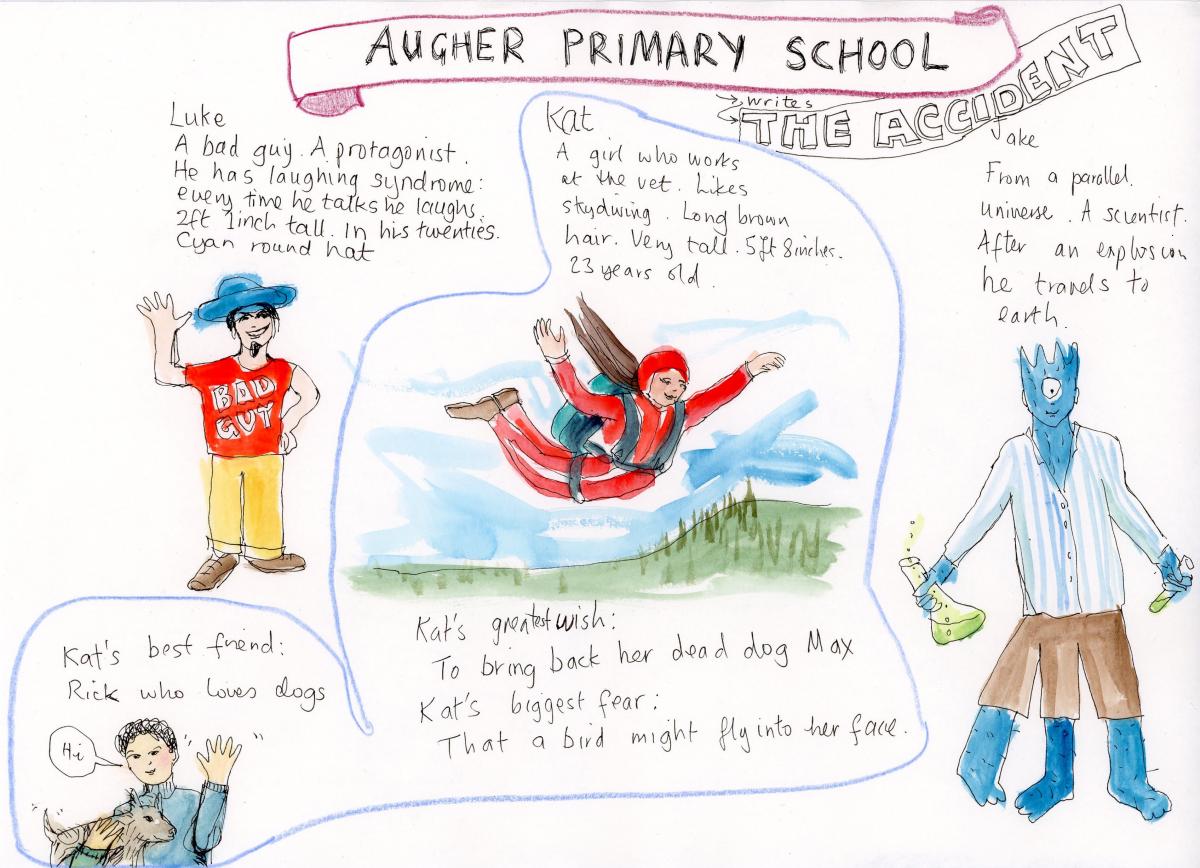 AUGHER PRIMARY SCHOOL
writes
THE ACCIDENT
Luke
A bad guy. A protagonist.
He has laughing syndrome:
every time he talks he laughs.
2ft 1inch tall. In his twenties.
Cyan round hat
BAD
GUY
Kat
A girl who works
at the vet. Likes
skydiving. Long brown
hair. Very tall. 5ft 8inches.
23 years old.
Jake
From a parallel
universe. A scientist.
After an explosion
he travels to
earth.
Kat's greatest wish:
To bring back her dead dog Max
Kat's biggest fear:
That a bird might fly into her face.
Kat's best friend:
Rick who loves dogs
Hi